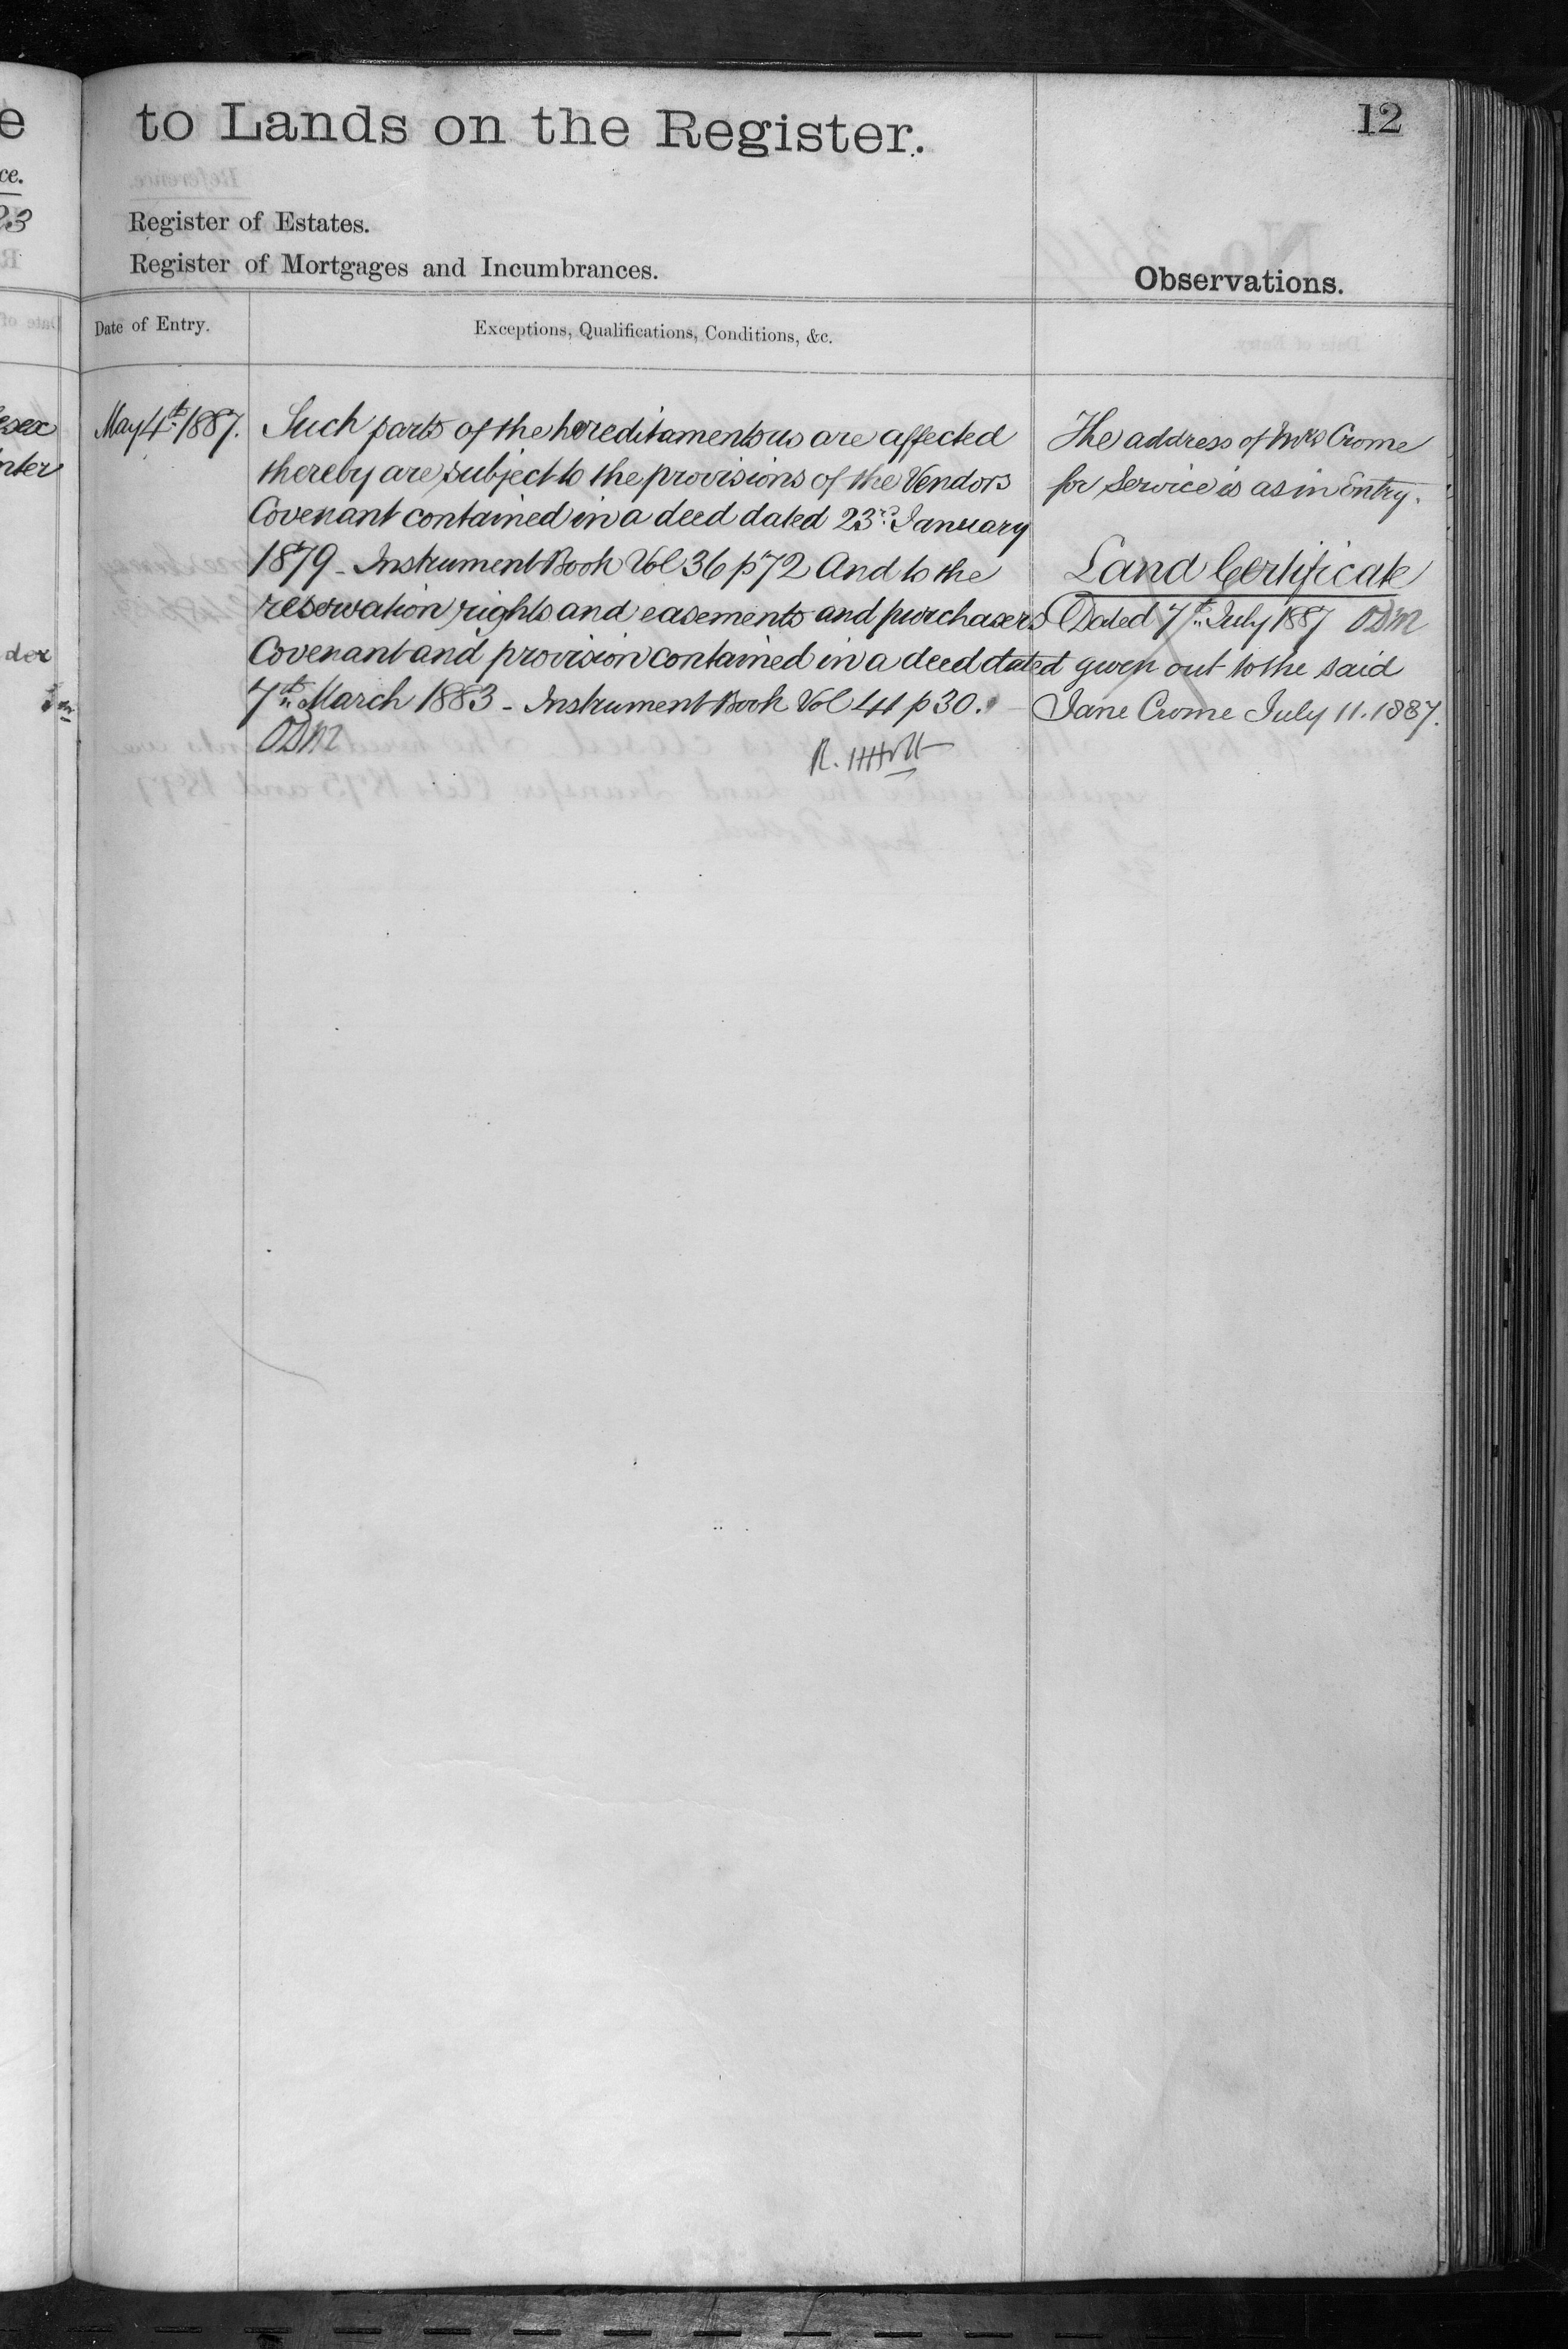 to Lands on the Register.
12
Register of Estates.
Register of Mortgages and Incumbrances.
Observations.
Date of Entry.
Exceptions, Qualifications, Conditions, &c.
May 4th 1887.
Such parts of the hereditaments as are affected
thereby are subject to the provisions of the Vendors
Covenant contained in a deed dated 23rd January
1879 - Instrument Book Vol 36 p 72 And to the
reservation rights and easements and purchasers
Covenant and provision contained in a deed dated
7th March 1883 - Instrument Book Vol 41 p 30.
ODM
The address of Mrs Crome
for Service is as in Entry.
Land Certificate
Dated 7th July 1887 ODM
given out to the said
Jane Crome July 11. 1887.